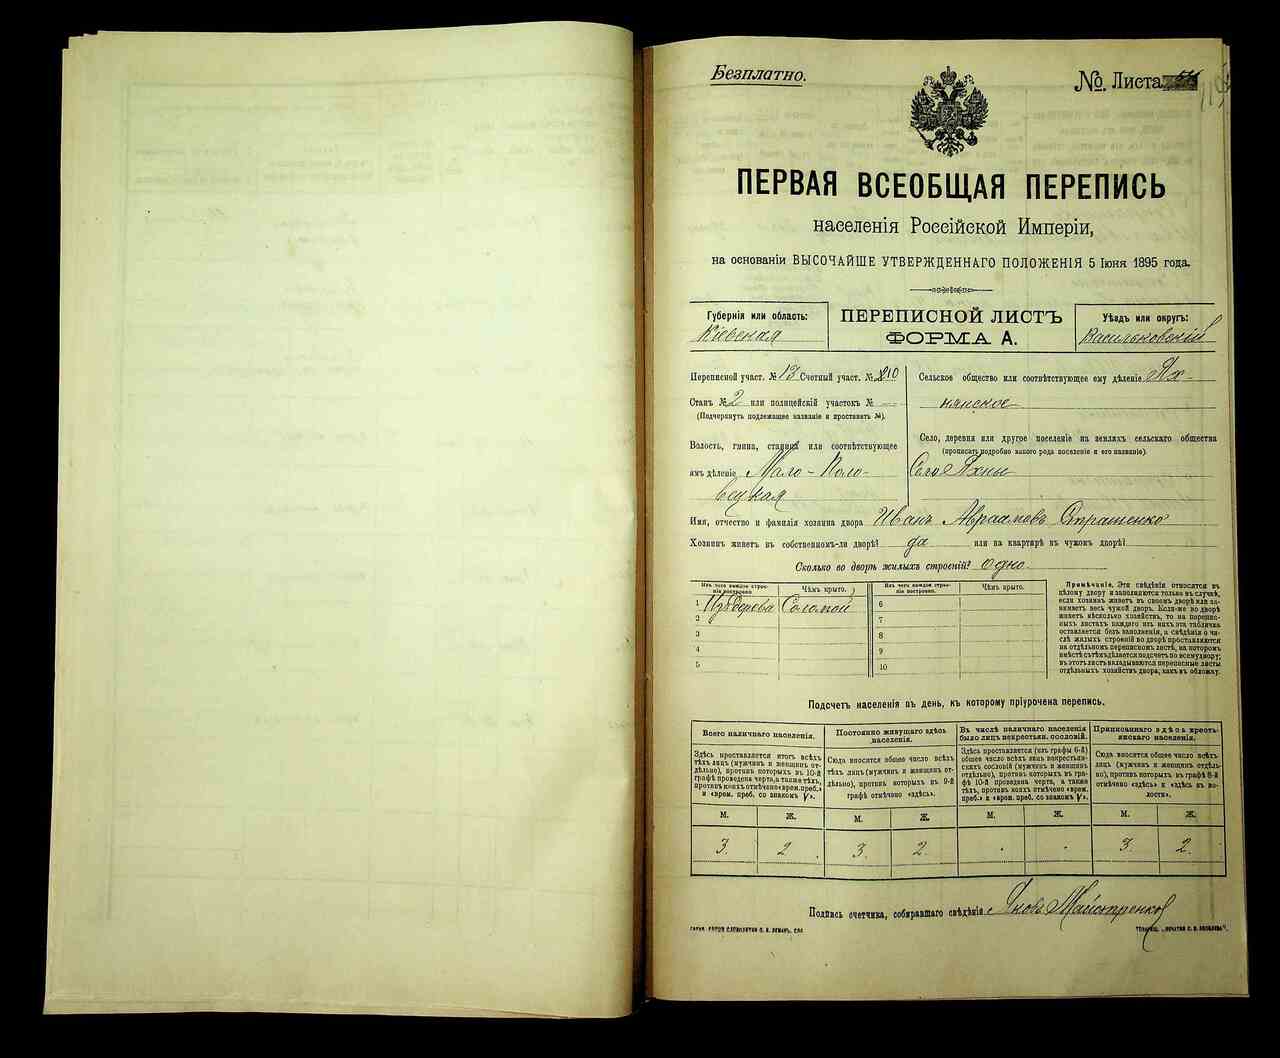 Безплатно.
№ Листа
ПЕРВАЯ ВСЕОБЩАЯ ПЕРЕПИСЬ
населенія Россійской Имперіи,
на основаніи ВЫСОЧАЙШЕ УТВЕРЖДЕННАГО ПОЛОЖЕНІЯ 5 Іюня 1895 года.
Губернія или область:
Кіевская
ПЕРЕПИСНОЙ ЛИСТЪ
ФОРМА А.
Уѣздъ или округъ:
Васильковскій
Переписной участ. № 13 Счетный участ. № 210
Станъ № 2 или полицейскій участокъ № —
(Подчеркнуть подлежащее названіе и проставить №).
Волость, гмина, станица или соотвѣтствующее
имъ дѣленіе Мало-Поло-
вецкая
Сельское общество или соотвѣтствующее ему дѣленіе Ях-
нянское
Село, деревня или другое поселеніе на земляхъ сельскаго общества
(прописать подробно какого рода поселеніе и его названіе).
Село Яхны
Имя, отчество и фамилія хозяина двора Иванъ Авраамовъ
Хозяинъ живетъ въ собственномъ-ли дворѣ? да или на квартирѣ въ чужомъ дворѣ?
Сколько во дворѣ жилыхъ строеній? одно
Изъ чего каждое строе-
ніе построено.
Чѣмъ крыто.
Изъ чего каждое строе-
ніе построено.
Чѣмъ крыто.
1 Изъ дерева Соломой 6
2 7
3 8
4 9
5 10
Примѣчаніе. Эти свѣдѣнія относятся къ
цѣлому двору и заполняются только въ случаѣ,
если хозяинъ живетъ въ своемъ дворѣ или за-
нимаетъ весь чужой дворъ. Если-же во дворѣ
живетъ нѣсколько хозяйствъ, то на перепис-
ныхъ листахъ каждаго изъ нихъ эта табличка
оставляется безъ заполненія, а свѣдѣнія о чи-
слѣ жилыхъ строеній во дворѣ проставляются
на отдѣльномъ переписномъ листѣ, на которомъ
вмѣстѣ съ тѣмъ дѣлается подсчетъ по всему двору;
въ этотъ листъ вкладываются переписные листы
отдѣльныхъ хозяйствъ двора, какъ въ обложку.
Подсчетъ населенія въ день, къ которому пріурочена перепись.
Всего наличнаго населенія.
Постоянно живущаго здѣсь
населенія.
Въ числѣ наличнаго населенія
было лицъ некрестьян. сословій.
Приписаннаго здѣсь кресть-
янскаго населенія.
Здѣсь проставляется итогъ всѣхъ
тѣхъ лицъ (мужчинъ и женщинъ от-
дѣльно), противъ которыхъ въ 10-й
графѣ проведена черта, а также тѣхъ,
противъ коихъ отмѣчено «врем. преб.»
и «врем. преб. со знакомъ V».
Сюда вносится общее число всѣхъ
тѣхъ лицъ (мужчинъ и женщинъ от-
дѣльно), противъ которыхъ въ 9-й
графѣ отмѣчено «здѣсь».
Здѣсь проставляется (изъ графы 6-й)
общее число всѣхъ лицъ некрестьян-
скихъ сословій (мужчинъ и женщинъ
отдѣльно), противъ которыхъ въ гра-
фѣ 10-й проведена черта, а также
тѣхъ, противъ коихъ отмѣчено «врем.
преб.» и «врем. преб. со знакомъ V».
Сюда вносится общее число всѣхъ
лицъ (мужчинъ и женщинъ отдѣль-
но), противъ которыхъ въ графѣ 8-й
отмѣчено «здѣсь» и «здѣсь въ во-
лости».
М. Ж. М. Ж. М. Ж. М. Ж.
3. 2. 3. 2. . . 3. 2.
Подпись счетчика, собиравшаго свѣдѣнія Яковъ Майстренко